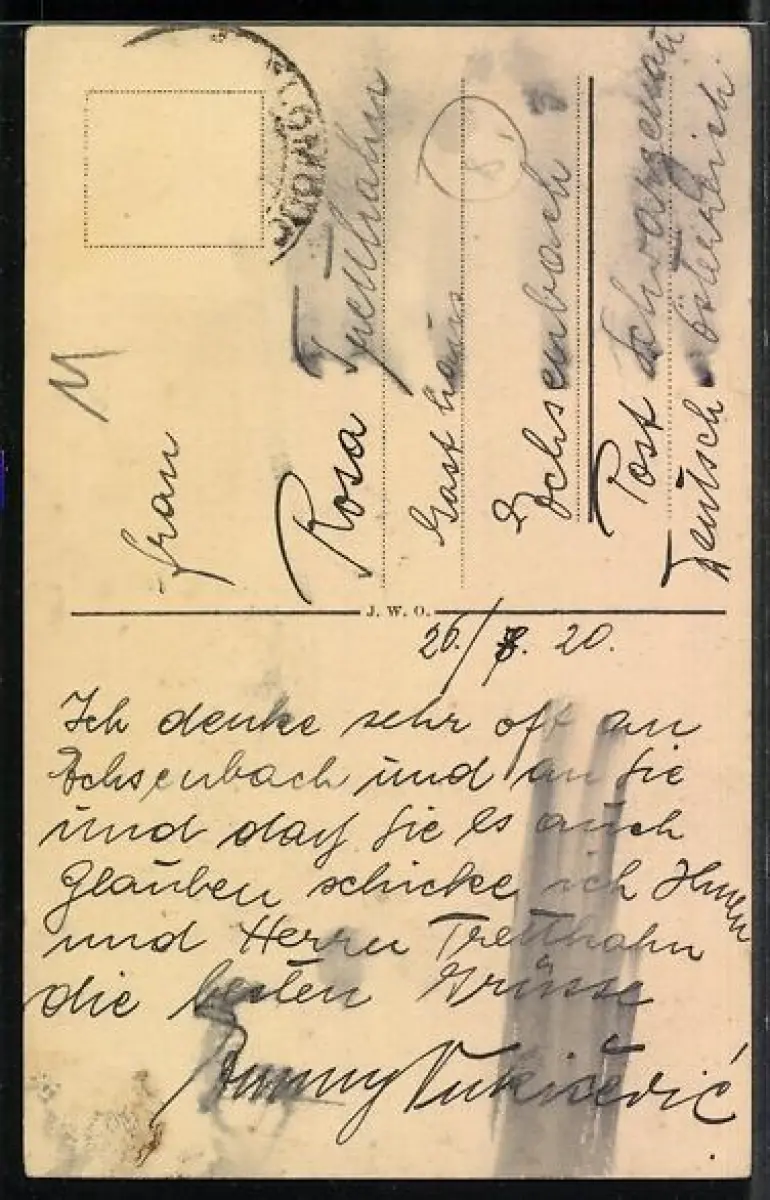 Frau
Rosa
Gasthaus
Echsenbach
8.
Post Schwarzenau
Deutsch-Österreich
J. W. O.
26./8. 20.
Ich denke sehr oft an
Echsenbach und an Sie
und daß Sie es auch
Glauben schicke ich Ihnen
und Herrn Tretthahn
die besten Grüsse
Vukičević